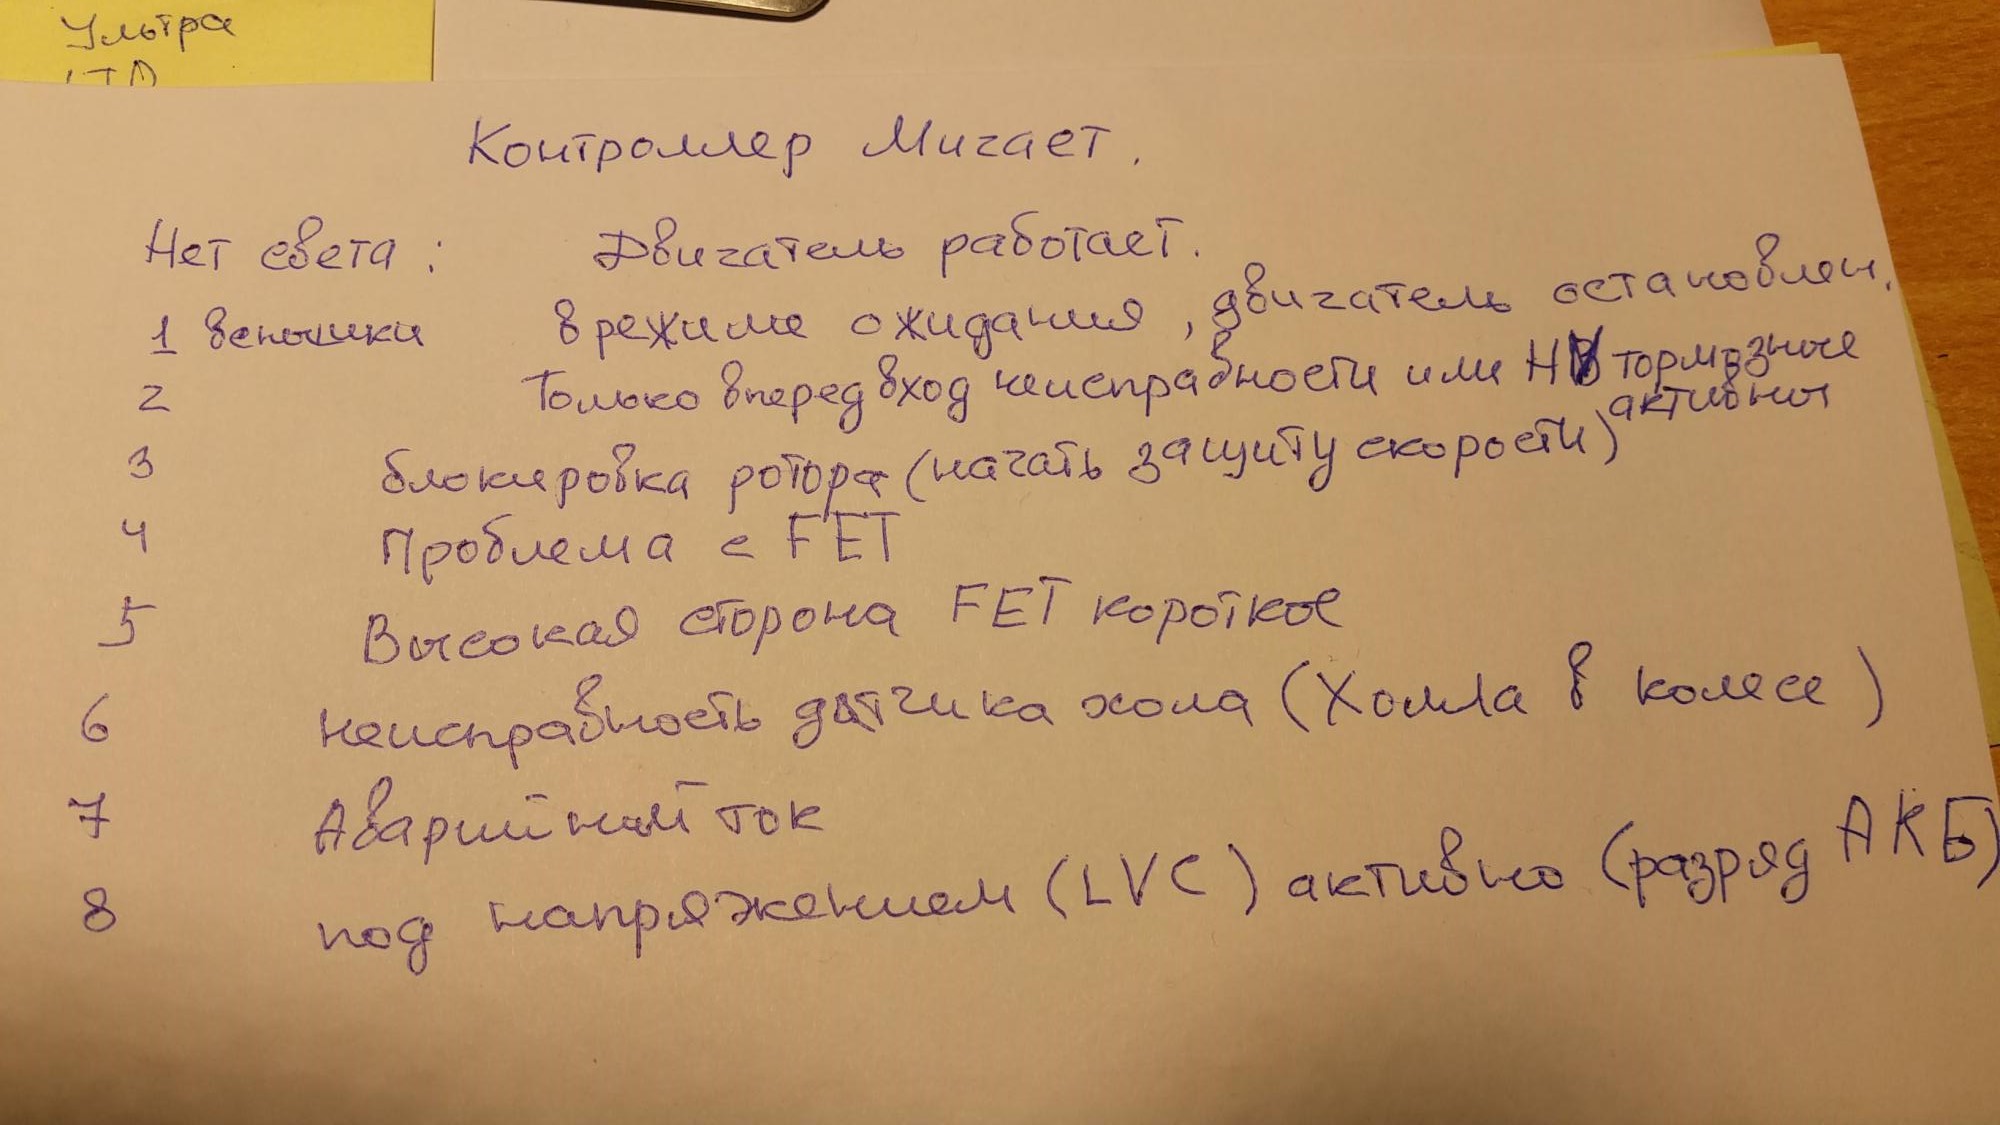 Ультра
Контроллер Мигает.
Нет света: Двигатель работает.
1 вспышки в режиме ожидания, двигатель остановлен.
2 Только вперед вход неисправности или HV тормозные
активны
3 блокировка ротора (начать защиту скорости)
4 Проблема с FET
5 Высокая сторона FET короткое
6 неисправность датчика хола (Холла в колесе)
7 Аварийный ток
8 под напряжением (LVC) активно (разряд АКБ)